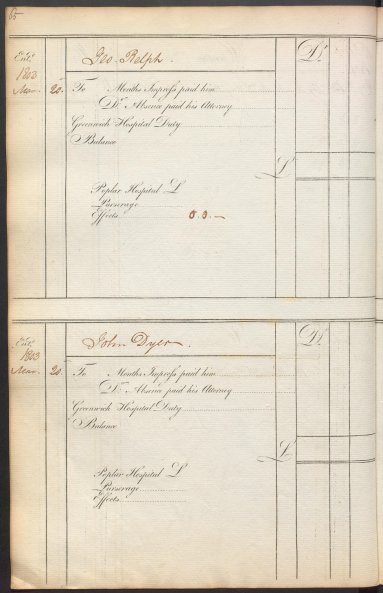 65
Geo. Ralph.
Dr.
Ent.
1803
Mar. 20.
To Months Imprest paid him
Do. Absence paid his Attorney
Greenwich Hospital Duty
Balance
£
Poplar Hospital £
Purserage
Effects 0.3.—
John Dyer.
Dr.
Ent.
1803
Mar. 20.
To Months Imprest paid him
Do. Absence paid his Attorney
Greenwich Hospital Duty
Balance
£
Poplar Hospital £
Purserage
Effects